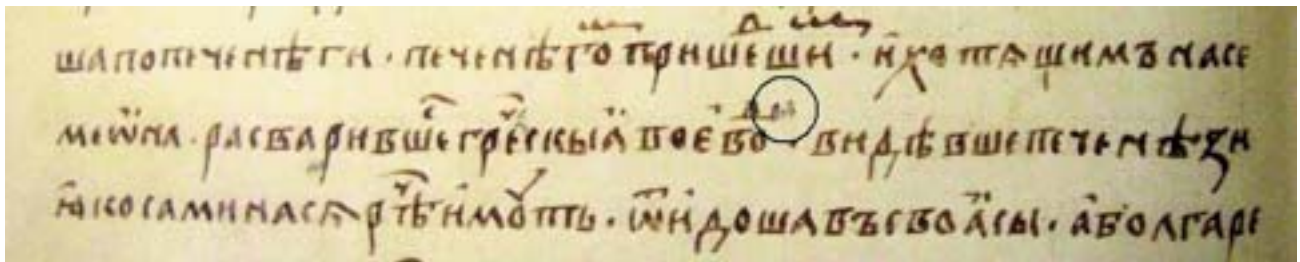 шапопеченѣги · печенѣгоⷨ пришеⷣшиⷨ · и҆хотѧщимъ насе
меѡ҆на · расварившеⷭ҇ греⷱ҇скыꙗ҆ воево · видѣвшепеченѣзи
ꙗ҆косаминасѧ рⷮѣ и҆моꙋть · ѿи҆доша въсвоаⷭ҇сы · а҆болгаре